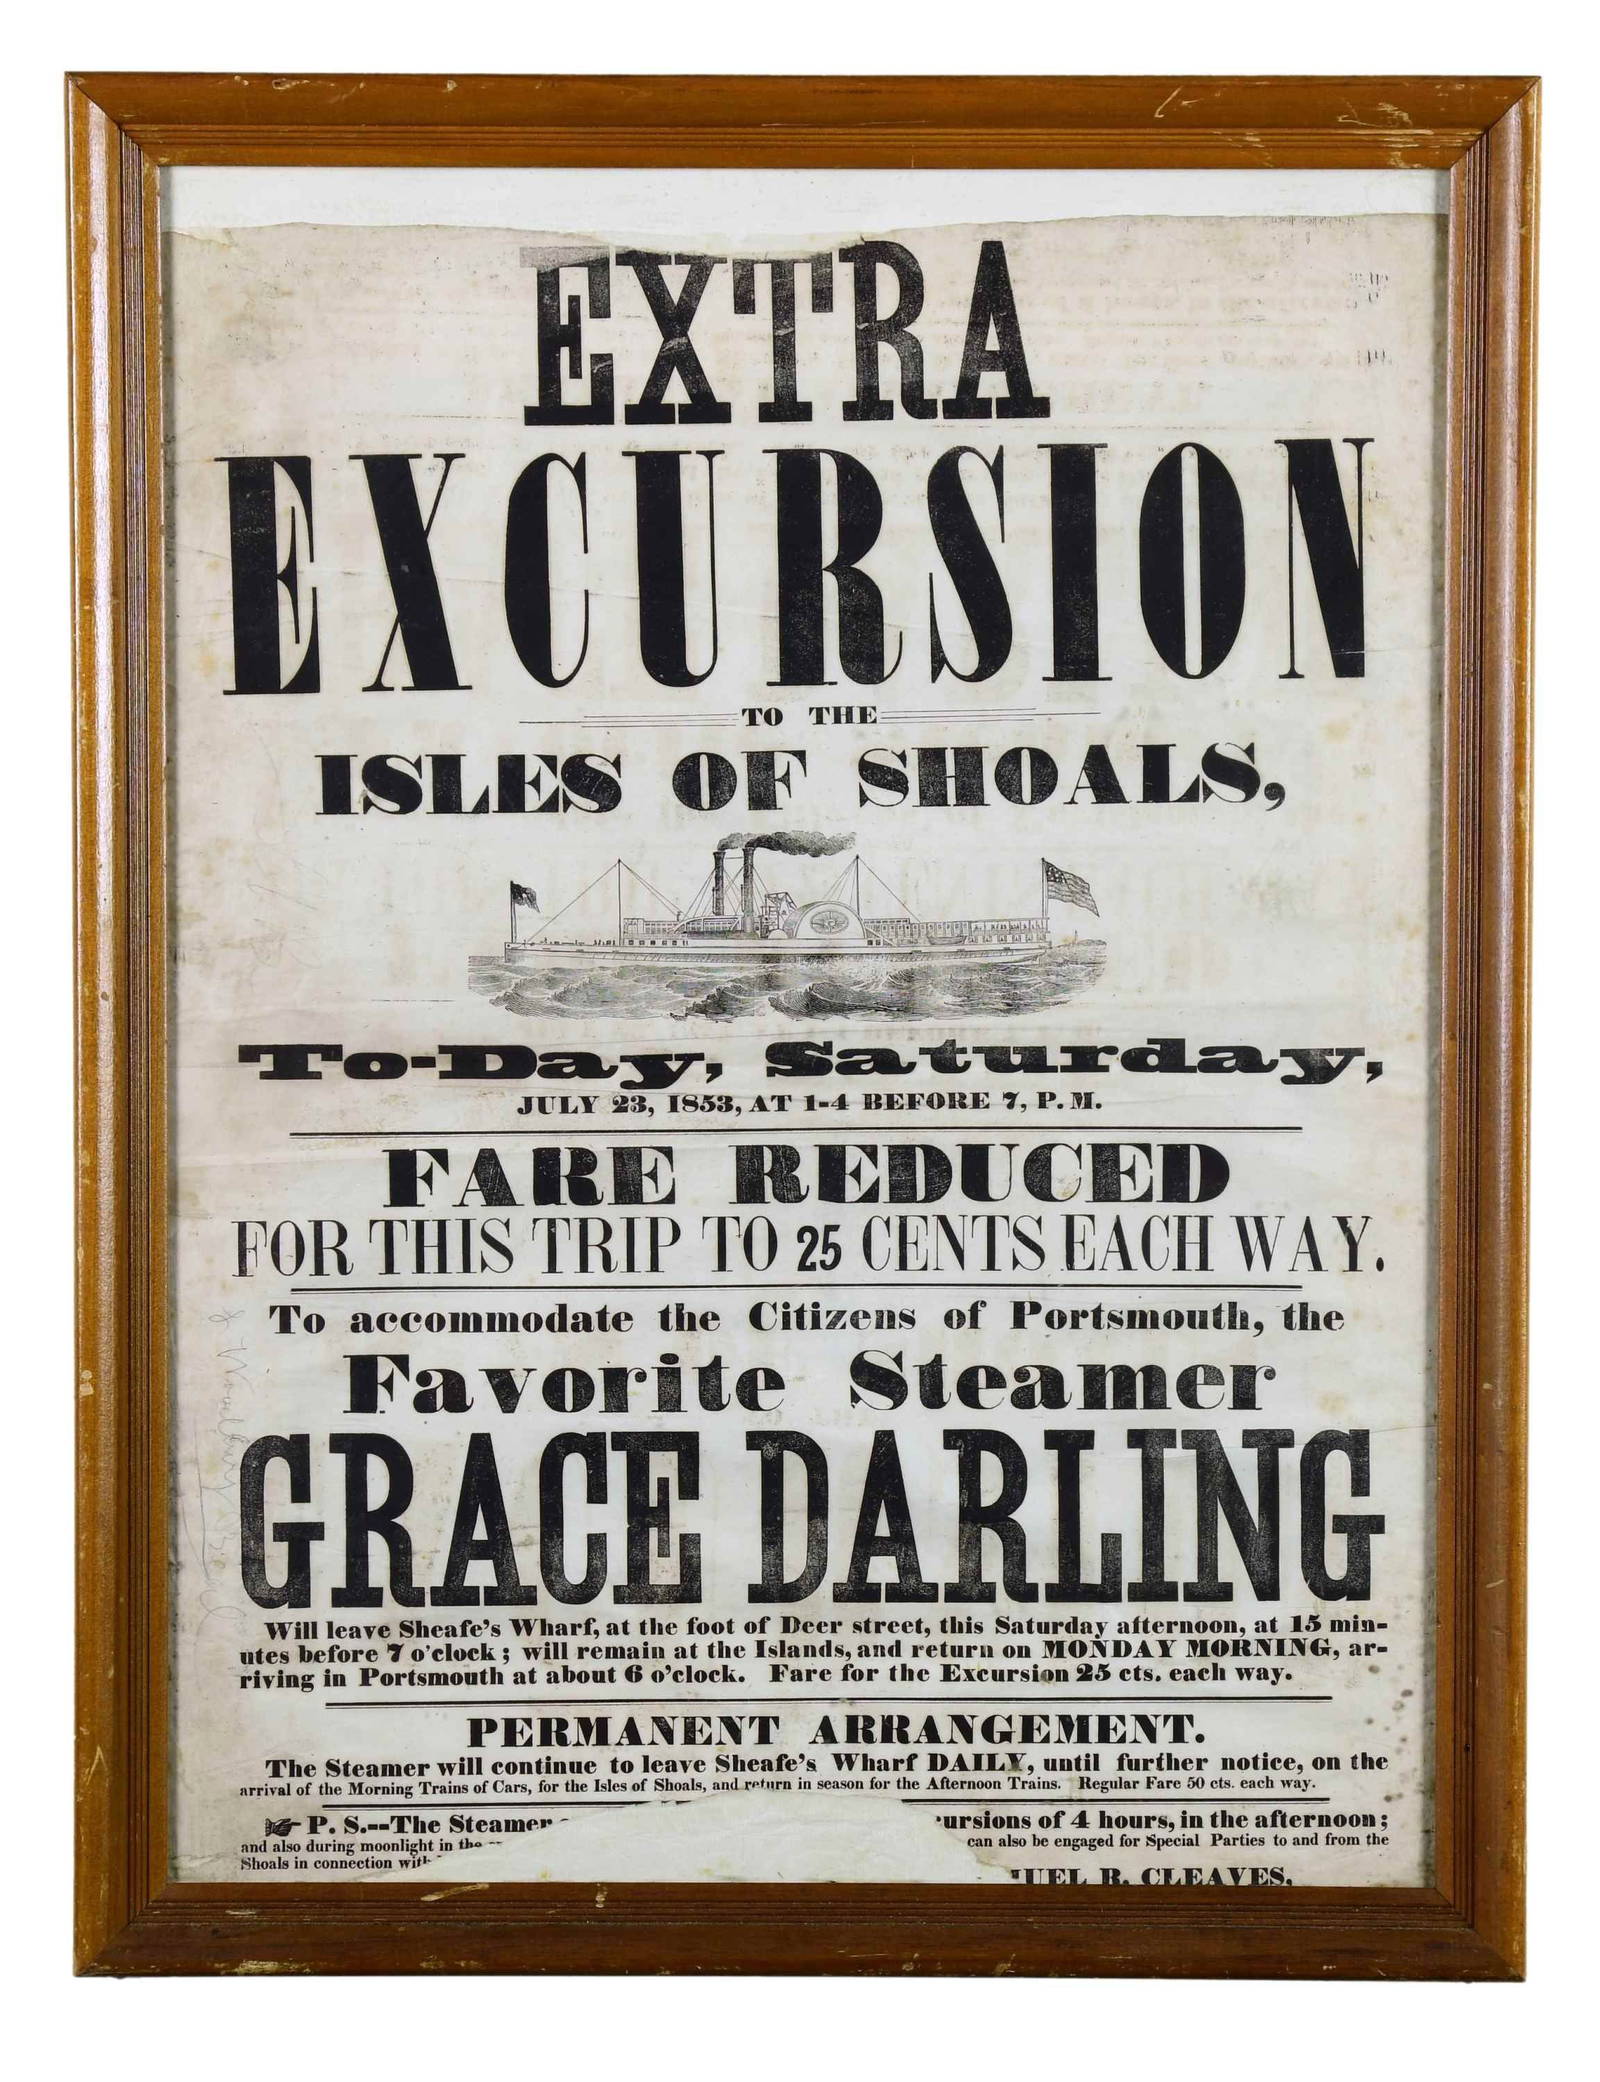 EXTRA
EXCURSION
TO THE
ISLES OF SHOALS,
To-Day, Saturday,
JULY 23, 1853, AT 1-4 BEFORE 7, P. M.
FARE REDUCED
FOR THIS TRIP TO 25 CENTS EACH WAY.
To accommodate the Citizens of Portsmouth, the
Favorite Steamer
GRACE DARLING
Will leave Sheafe's Wharf, at the foot of Deer street, this Saturday afternoon, at 15 min-
utes before 7 o'clock; will remain at the Islands, and return on MONDAY MORNING, ar-
riving in Portsmouth at about 6 o'clock. Fare for the Excursion 25 cts. each way.
PERMANENT ARRANGEMENT.
The Steamer will continue to leave Sheafe's Wharf DAILY, until further notice, on the
arrival of the Morning Trains of Cars, for the Isles of Shoals, and return in season for the Afternoon Trains. Regular Fare 50 cts. each way.
☞ P. S.--The Steamer cursions of 4 hours, in the afternoon;
and also during moonlight in the can also be engaged for Special Parties to and from the
Shoals in connection with
MUEL R. CLEAVES,